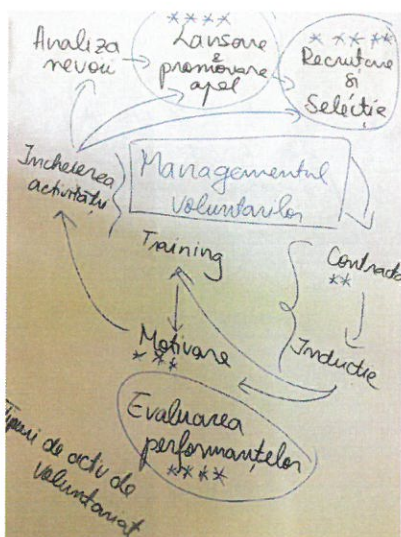 Analiza
nevoii
****
Lansare
&
promovare
apel
* ** **
Recrutare
&
Selecție
Incheierea
activității
Managementul
voluntarilor
Training
Contracta
**
Inducție
Motivare
***
Evaluarea
performanțelor
****
Tipuri de activ de
voluntariat